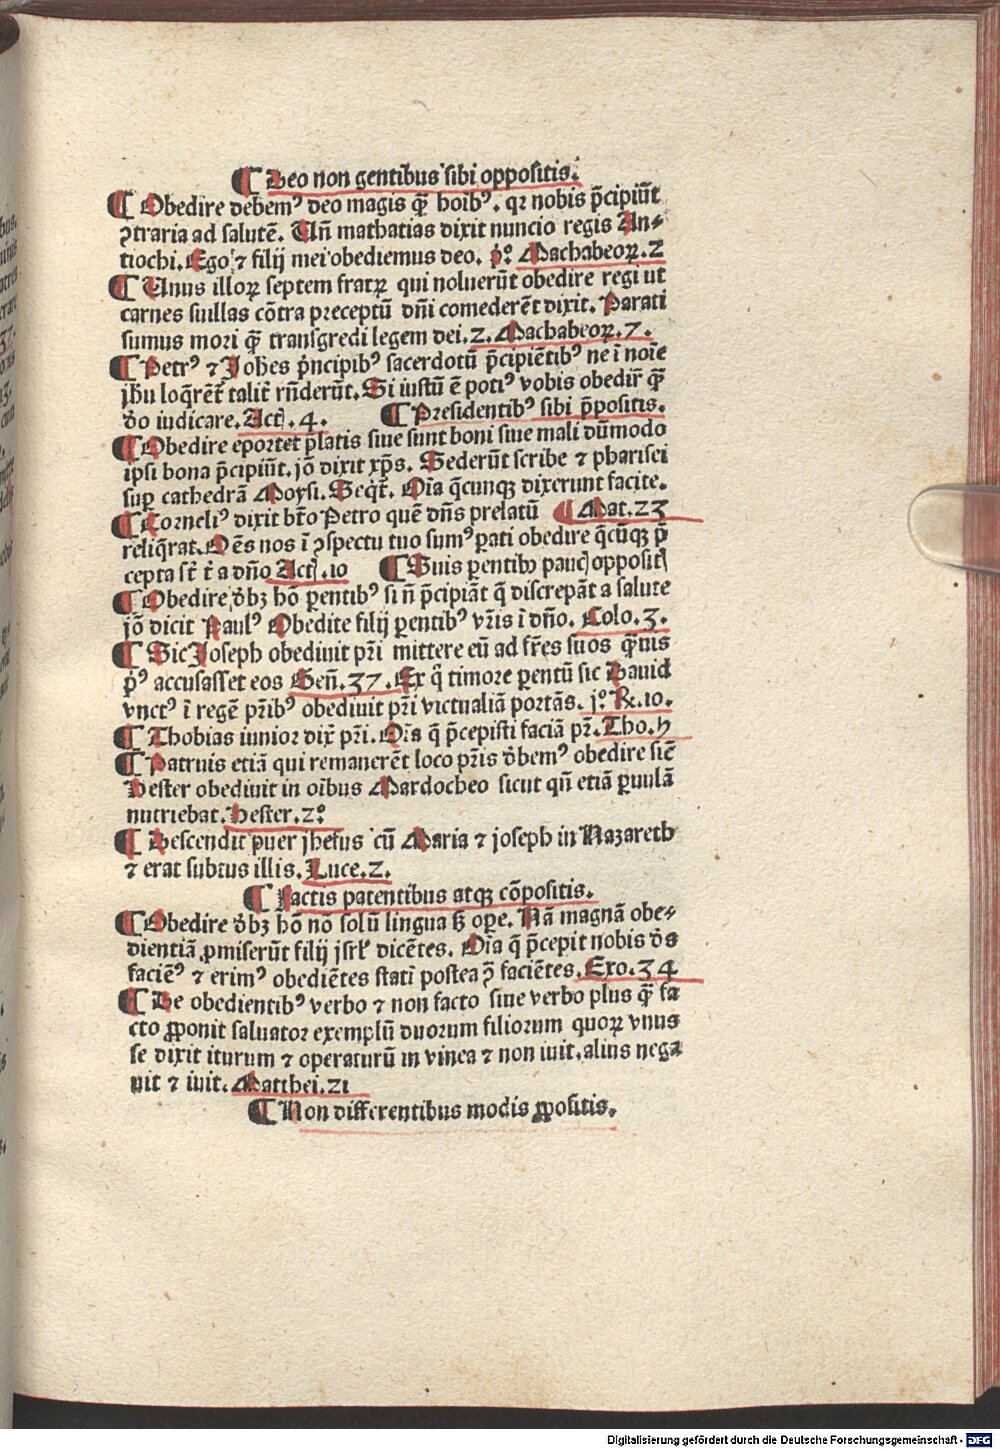 ¶ Deo non gentibus sibi oppositis.
¶ Obedire debemꝰ deo magis q̃ȝ hoĩbꝰ. qꝛ nobis p̃cipiũt
ꝯtraria ad salutẽ. Uñ mathatias dixit nuncio regis An⸗
tiochi. Ego ⁊ filij mei obediemus deo. p̊: Machabeoꝝ. 2
¶ Unus illoꝝ septem fratꝝ qui noluerũt obedire regi ut
carnes suillas cõtra preceptũ dñi comederẽt dixit. Parati
sumus mori q̃ȝ transgredi legem dei. 2. Machabeoꝝ. 7.
¶ Petrꝰ ⁊ Johẽs p̃ncipibꝰ sacerdotũ p̃cipiẽtibꝰ ne ĩ noĩe
jhũ loq̃rẽt̃ talit̃ rñderũt. Si iustũ ẽ potiꝰ vobis obedir̃ q̃ȝ
d̃o iudicare. Actꝭ. 4. ¶ Presidentibꝰ sibi p̃positis.
¶ Obedire eportet p̃latis siue sunt boni siue mali dũmodo
ipsi bona p̃cipiũt. jõ dixit xp̃s. Sederũt scribe ⁊ pharisei
suꝑ cathedrã Moysi. Seq̃t̃. Oĩa q̃cunqꝫ dixerunt facite.
¶ Corneliꝰ dixit bt̃o Petro quẽ dñs prelatũ ¶ Mat. 23
reliq̃rat. Oẽs nos ĩ ꝯspectu tuo sumꝰ ꝑati obedire q̃cũqꝫ p̃
cepta st̃ t̃ a dño Actꝭ. 10 ¶ Suis ꝑentibꝰ paucꝭ opposit̃ꝭ
¶ Obedire d̃bꝫ hõ ꝑentibꝰ si ñ p̃cipiãt q̃ discrepãt a salute
jõ dicit Paulꝰ Obedite filij ꝑentibꝰ vr̃is ĩ dño. Colo. 3.
¶ Sic Joseph obediuit pr̃i mittere eũ ad fr̃es suos q̃ꝫuis
p̃ꝰ accusasset eos Geñ. 37. Ex q̃ timore ꝑentũ sic Dauid
vnctꝰ ĩ regẽ pr̃ibꝰ obediuit pr̃i victualiã portãs. jº. R. 10.
¶ Thobias iunior dix̃ pr̃i. Oĩa q̃ p̃cepisti faciã pr̃. Tho. h
¶ Patruis etiã qui remanerẽt loco pr̃is d̃bemꝰ obedire siẽ
Hester obediuit in oĩbus Mardocheo sicut qñ etiã ꝑuulã
nutriebat. Hester. 2º
¶ Descendit puer jhesus cũ Maria ⁊ joseph in Nazareth
⁊ erat subtus illis. Luce. 2.
¶ Factis patentibus atqꝫ cõpositis.
¶ Obedire d̃bꝫ hõ nõ solũ lingua ꝫ oꝑe. Nã magnã obe⸗
dientiã ꝓmiserũt filij jsrł dicẽtes. Oĩa q̃ p̃cepit nobis d̃s
faciẽꝰ ⁊ erimꝰ obediẽtes statĩ postea ꝯ̃ faciẽtes. Exo. 34
¶ De obedientibꝰ verbo ⁊ non facto siue verbo plus q̃ȝ fa
cto ꝓponit saluator exemplũ duorum filiorum quoꝝ vnus
se dixit iturum ⁊ operaturũ in vinea ⁊ non iuit. alius nega
uit ⁊ iuit. Matthei. 21
¶ Non differentibus modis ꝓpositis.
Digitalisierung gefördert durch die Deutsche Forschungsgemeinschaft - DFG